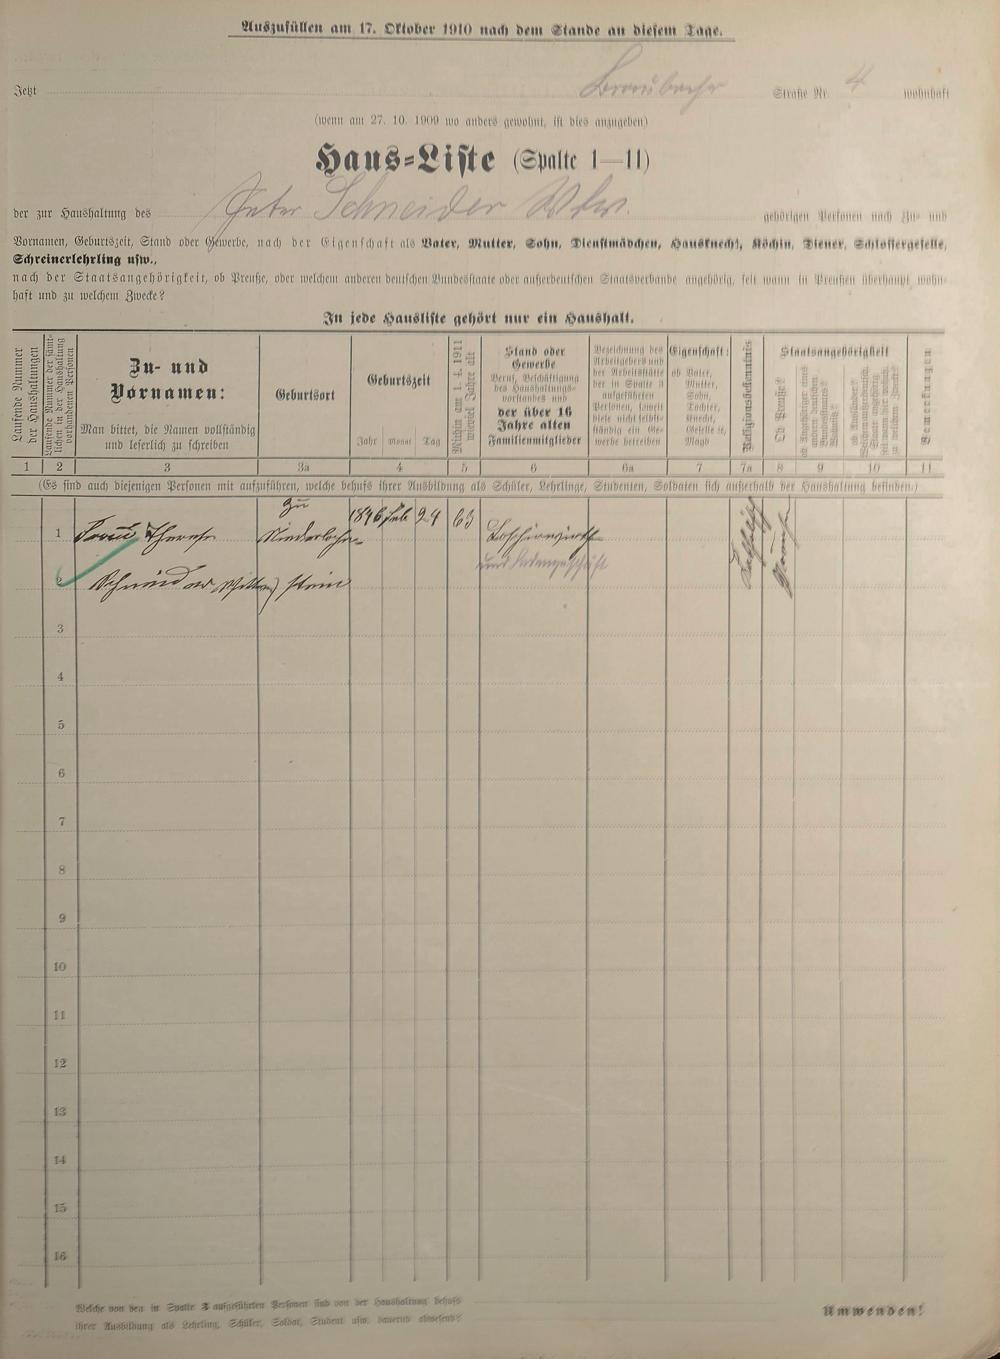 Auszufüllen am 17. Oktober 1910 nach dem Stande an diesem Tage.
Jetzt Braubacher Straße Nr. 4 wohnhaft
(wenn am 27. 10. 1909 wo anders gewohnt, ist dies anzugeben)
Haus-Liste (Spalte 1—11)
der zur Haushaltung des Peter Schneider Wtw. gehörigen Personen nach Zu- und
Vornamen, Geburtszeit, Stand oder Gewerbe, nach der Eigenschaft als Vater, Mutter, Sohn, Dienstmädchen, Hausknecht, Köchin, Diener, Schlossergeselle,
Schreinerlehrling usw.,
nach der Staatsangehörigkeit, ob Preuße, oder welchem anderen deutschen Bundesstaate oder außerdeutschen Staatsverbande angehörig, seit wann in Preußen überhaupt wohn-
haft und zu welchem Zwecke?
In jede Hausliste gehört nur ein Haushalt.
Laufende Nummer der Haushaltungen
Laufende Nummer der sämtlichen in der Haushaltung vorhandenen Personen
Zu- und
Vornamen:
Man bittet, die Namen vollständig
und leserlich zu schreiben
Geburtsort
Geburtszeit
Jahr Monat Tag
Mithin am 1. 4. 1911 wieviel Jahre alt
Stand oder
Gewerbe
Beruf, Beschäftigung
des Haushaltungs-
vorstandes und
der über 16
Jahre alten
Familienmitglieder
Bezeichnung des
Arbeitgebers und
der Arbeitsstätte
der in Spalte 3
aufgeführten
Personen, soweit
diese nicht selbst-
ständig ein Ge-
werbe betreiben
Eigenschaft:
ob Vater,
Mutter,
Sohn,
Tochter,
Knecht,
Geselle st,
Magd
Religionsbekenntnis
Staatsangehörigkeit
Ob Preuße?
ob Angehöriger eines andern deutschen Bundesstaates? Welches?
ob Ausländer?
Bemerkungen
1 2 3 3a 4 5 6 6a 7 7a 8 9 10 11
(Es sind auch diejenigen Personen mit aufzuführen, welche behufs ihrer Ausbildung als Schüler, Lehrlinge, Studenten, Soldaten sich außerhalb der Haushaltung befinden.)
zu
1 Frau Therese Niederlahn- 1846 Juli 24 63
und Ladengeschäft
2 Schneider Wittwe stein
3
4
5
6
7
8
9
10
11
12
13
14
15
16
Welche von den in Spalte 3 aufgeführten Personen sind von der Haushaltung behufs
ihrer Ausbildung als Lehrling, Schüler, Soldat, Student usw. dauernd abwesend?
Umwenden!